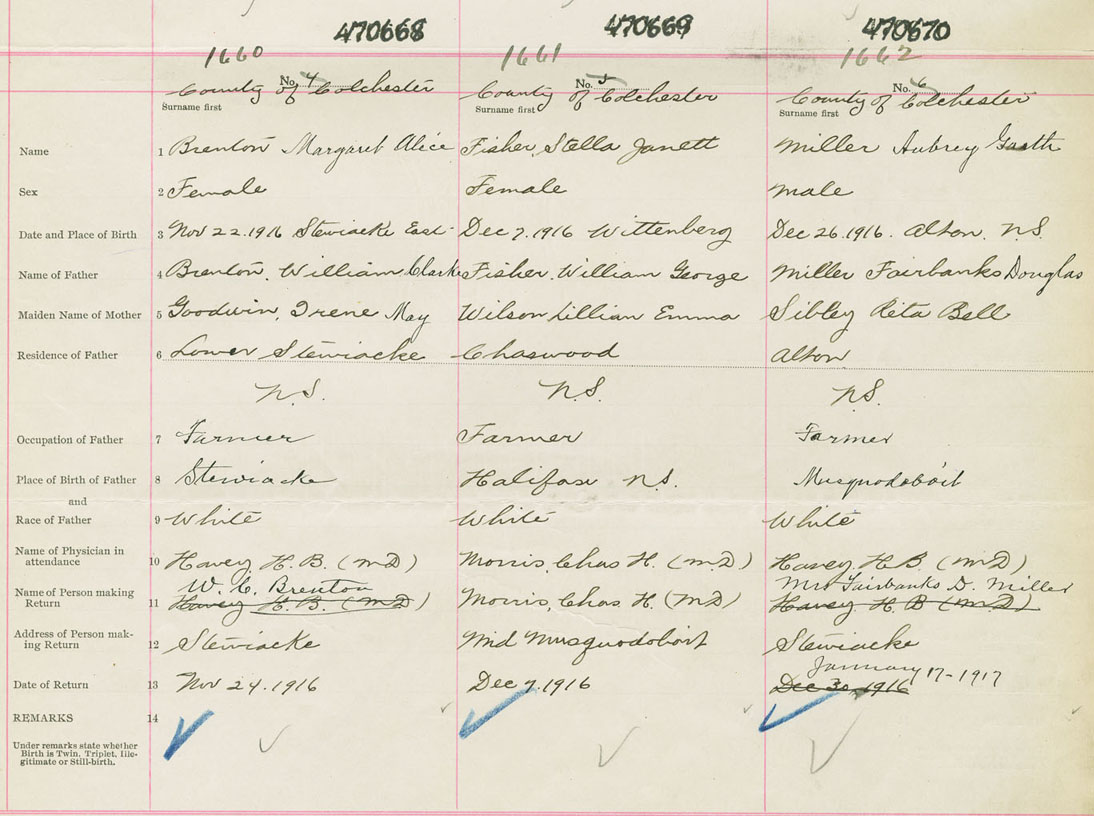 470668 470669 470670
1660 1661 1662
No. 4 No. 5 No. 6
County of Colchester County of Colchester County of Colchester
Surname first Surname first Surname first
Name 1 Brenton Margaret Alice Fisher, Stella Janett Miller Aubrey Garth
Sex 2 Female Female Male
Date and Place of Birth 3 Nov 22.1916 Stewiacke East Dec 7.1916 Wittenberg Dec 26.1916. Alton. N.S.
Name of Father 4 Brenton, William Clarke Fisher, William George Miller Fairbanks Douglas
Maiden Name of Mother 5 Goodwin, Irene May Wilson Lillian Emma Sibley Reta Bell
Residence of Father 6 Lower Stewiacke Chaswood Alton
N.S. N.S. N.S.
Occupation of Father 7 Farmer Farmer Farmer
Place of Birth of Father 8 Stewiacke Halifax N.S. Musquodoboit
and
Race of Father 9 White White White
Name of Physician in
attendance 10 Havey H. B. (MD) Morris, Chas H. (MD) Havey, H.B. (MD)
W. C. Brenton Mrs Fairbanks D. Miller
Name of Person making
Return 11 Havey H. B. (MD) Morris, Chas. H. (MD) Havey H B (MD)
Address of Person mak-
ing Return 12 Stewiacke Mid Musquodoboit Stewiacke
January 17-1917
Date of Return 13 Nov 24.1916 Dec 7.1916 Dec 30.1916
REMARKS 14
Under remarks state whether
Birth is Twin, Triplet, Ille-
gitimate or Still-birth.